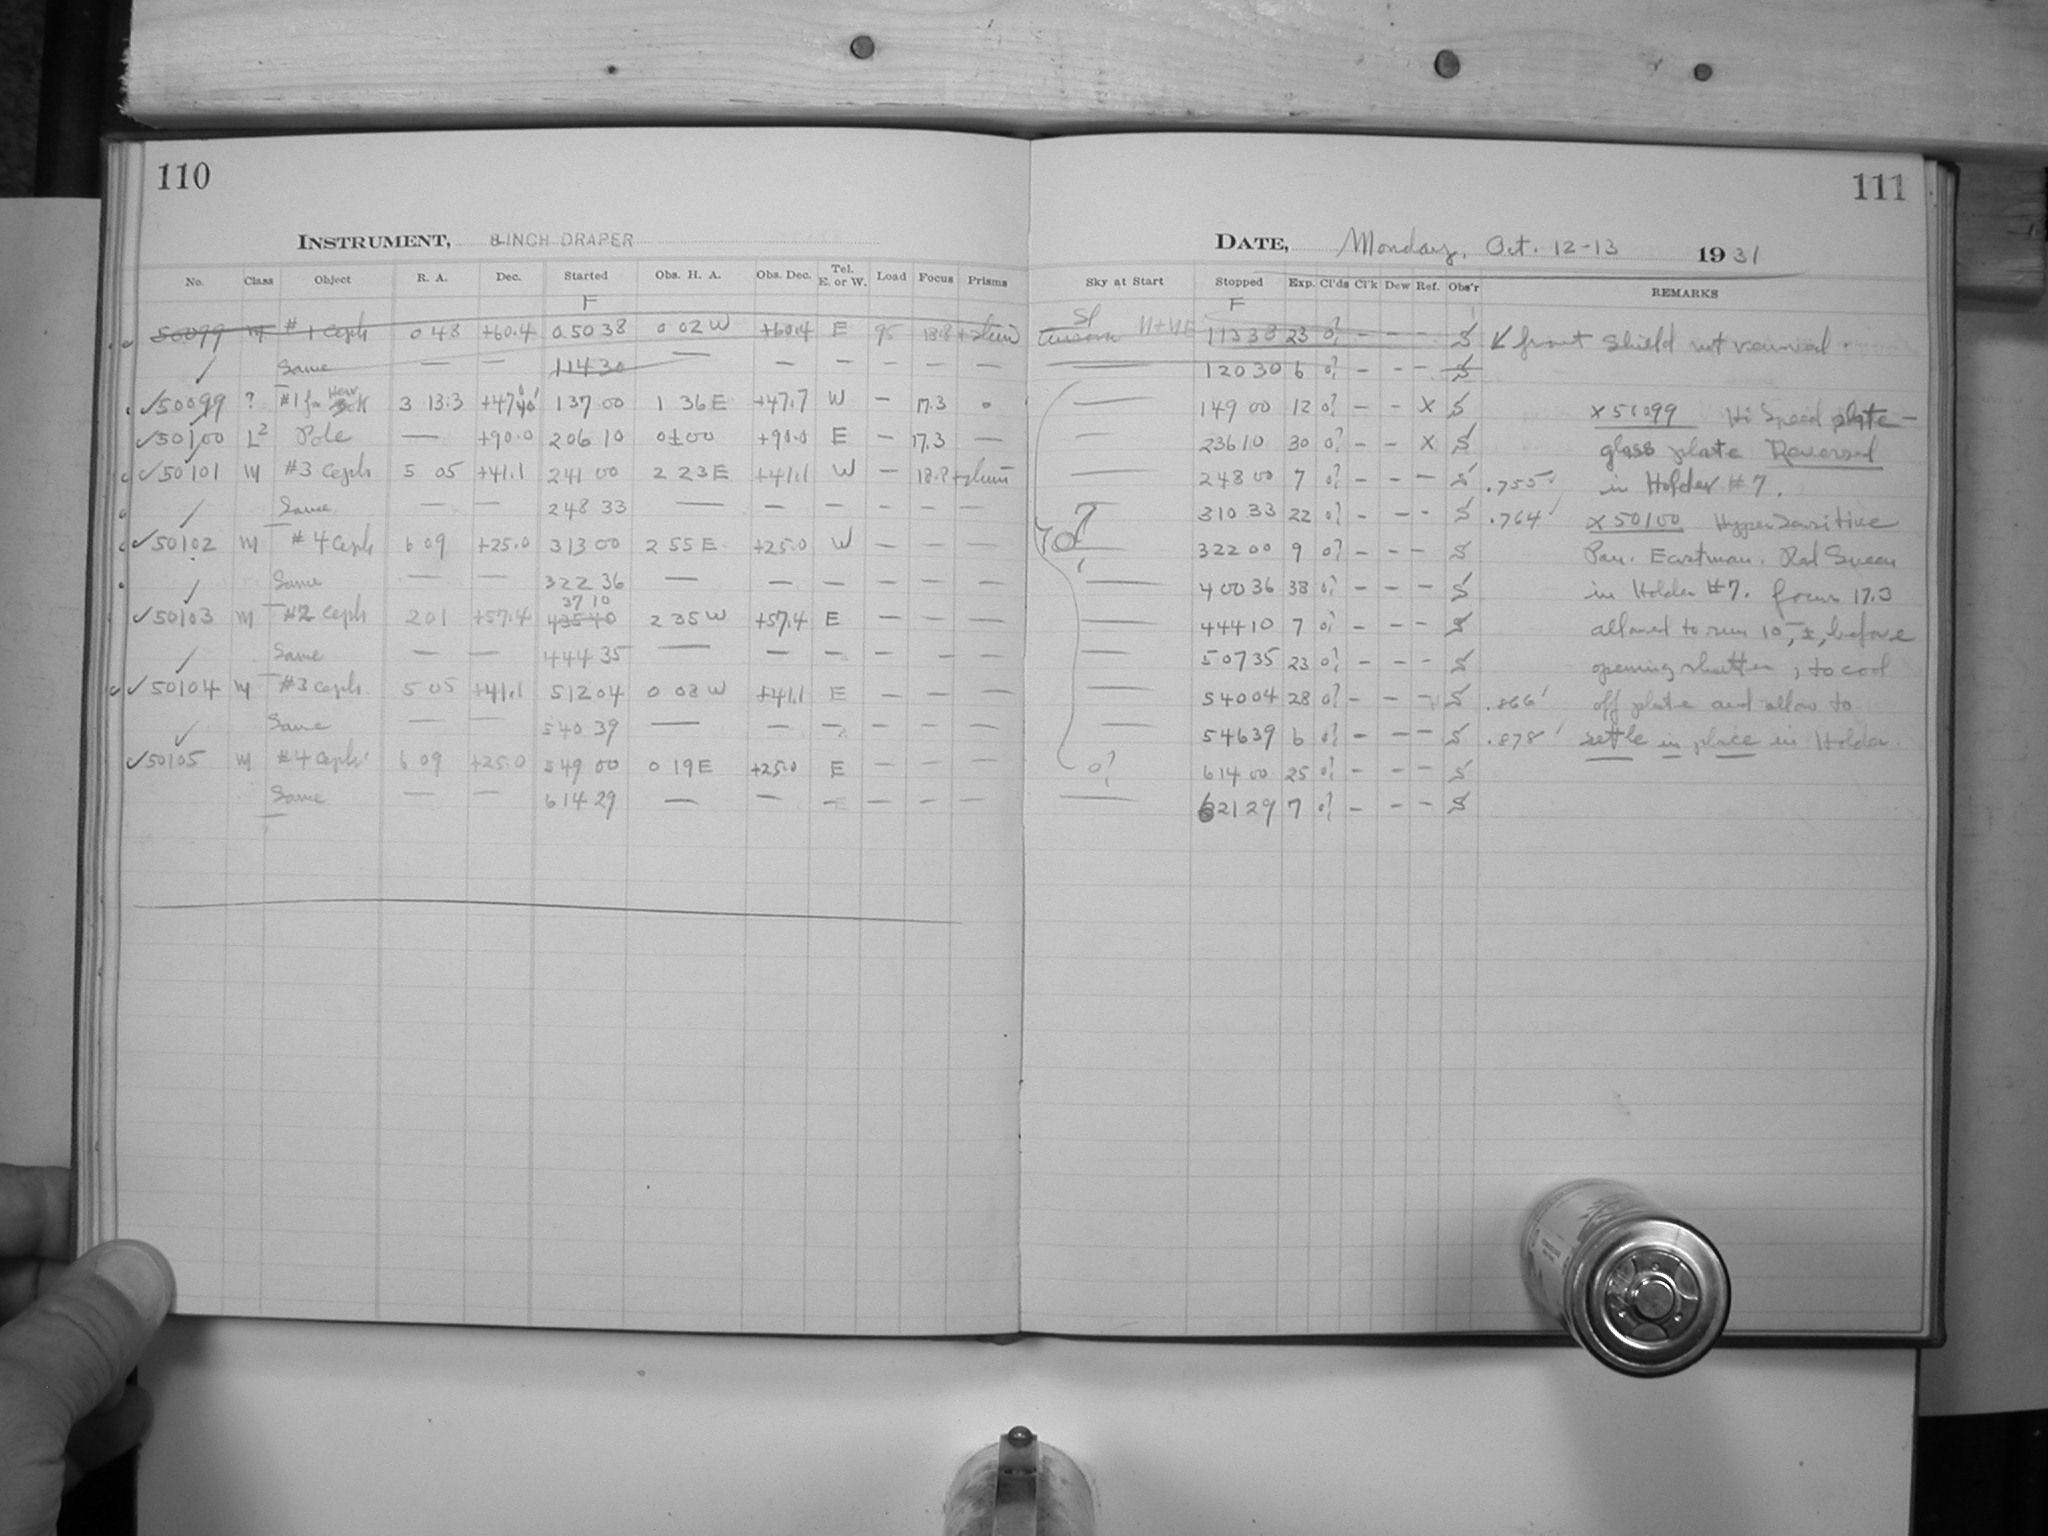 110
INSTRUMENT, 8 INCH DRAPER
No. Class Object R. A. Dec. Started Obs. H. A. Obs. Dec. Tel. E. or W. Load Focus Prisms
F
50099 M #1 Ceph 0 48 +60.4 0 50 38 0 02 W +60.4 E 95 18.8
Same — — 1 14 30 — — — — — —
✓50099 ? #1 3 13.3 1 37 00 1 36 E +47.7 W — 17.3 0
✓50100 L² Pole — +90.0 2 06 10 0±00 +90.0 E — 17.3 —
✓50101 M #3 Ceph 5 05 +41.1 2 41 00 2 23 E +41.1 W — 18.8
✓ Same — — 2 48 33 — — — — — —
✓50102 M #4 Ceph 6 09 +25.0 3 13 00 2 55 E +25.0 W — — —
✓ Same — — 3 22 36 — — — — — —
37 10
✓50103 M #2 Ceph 2 01 +57.4 4 35 40 2 35 W +57.4 E — — —
✓ Same — — 4 44 35 — — — — — —
✓50104 M #3 Ceph 5 05 +41.1 5 12 04 0 08 W +41.1 E — — —
✓ Same — — 5 40 39 — — — — — —
✓50105 M #4 Ceph 6 09 +25.0 5 49 00 0 19 E +25.0 E — — —
Same — — 6 14 29 — — — — — —
111
DATE, Monday, Oct. 12-13 1931
Sky at Start Stopped Exp. Cl'ds Cl'k Dew Ref. Obs'r REMARKS
F
Sl
Aurora N+NE 1 13 38 23 0? — — — S front shield not removed.
— 1 20 30 6 0? — — — S
— 1 49 00 12 0? — — X S X 50099 Hi Speed plate —
— 2 36 10 30 0? — — X S glass plate Reversed
— 2 48 00 7 0? — — — S .755 in Holder #7.
— 3 10 33 22 0? — — — S .764 X 50100 Hypersensitive
0? — 3 22 00 9 0? — — — S Pan. Eastman. Red Screen
— 4 00 36 38 0? — — — S in Holder #7. focus 17.3
— 4 44 10 7 0? — — — S allowed to run 10 ±, before
— 5 07 35 23 0? — — — S opening shutter, to cool
— 5 40 04 28 0? — — — S .866 off plate and allow to
— 5 46 39 6 0? — — — S .878 settle in place in Holder.
0? 6 14 00 25 0? — — — S
— 6 21 29 7 0? — — — S